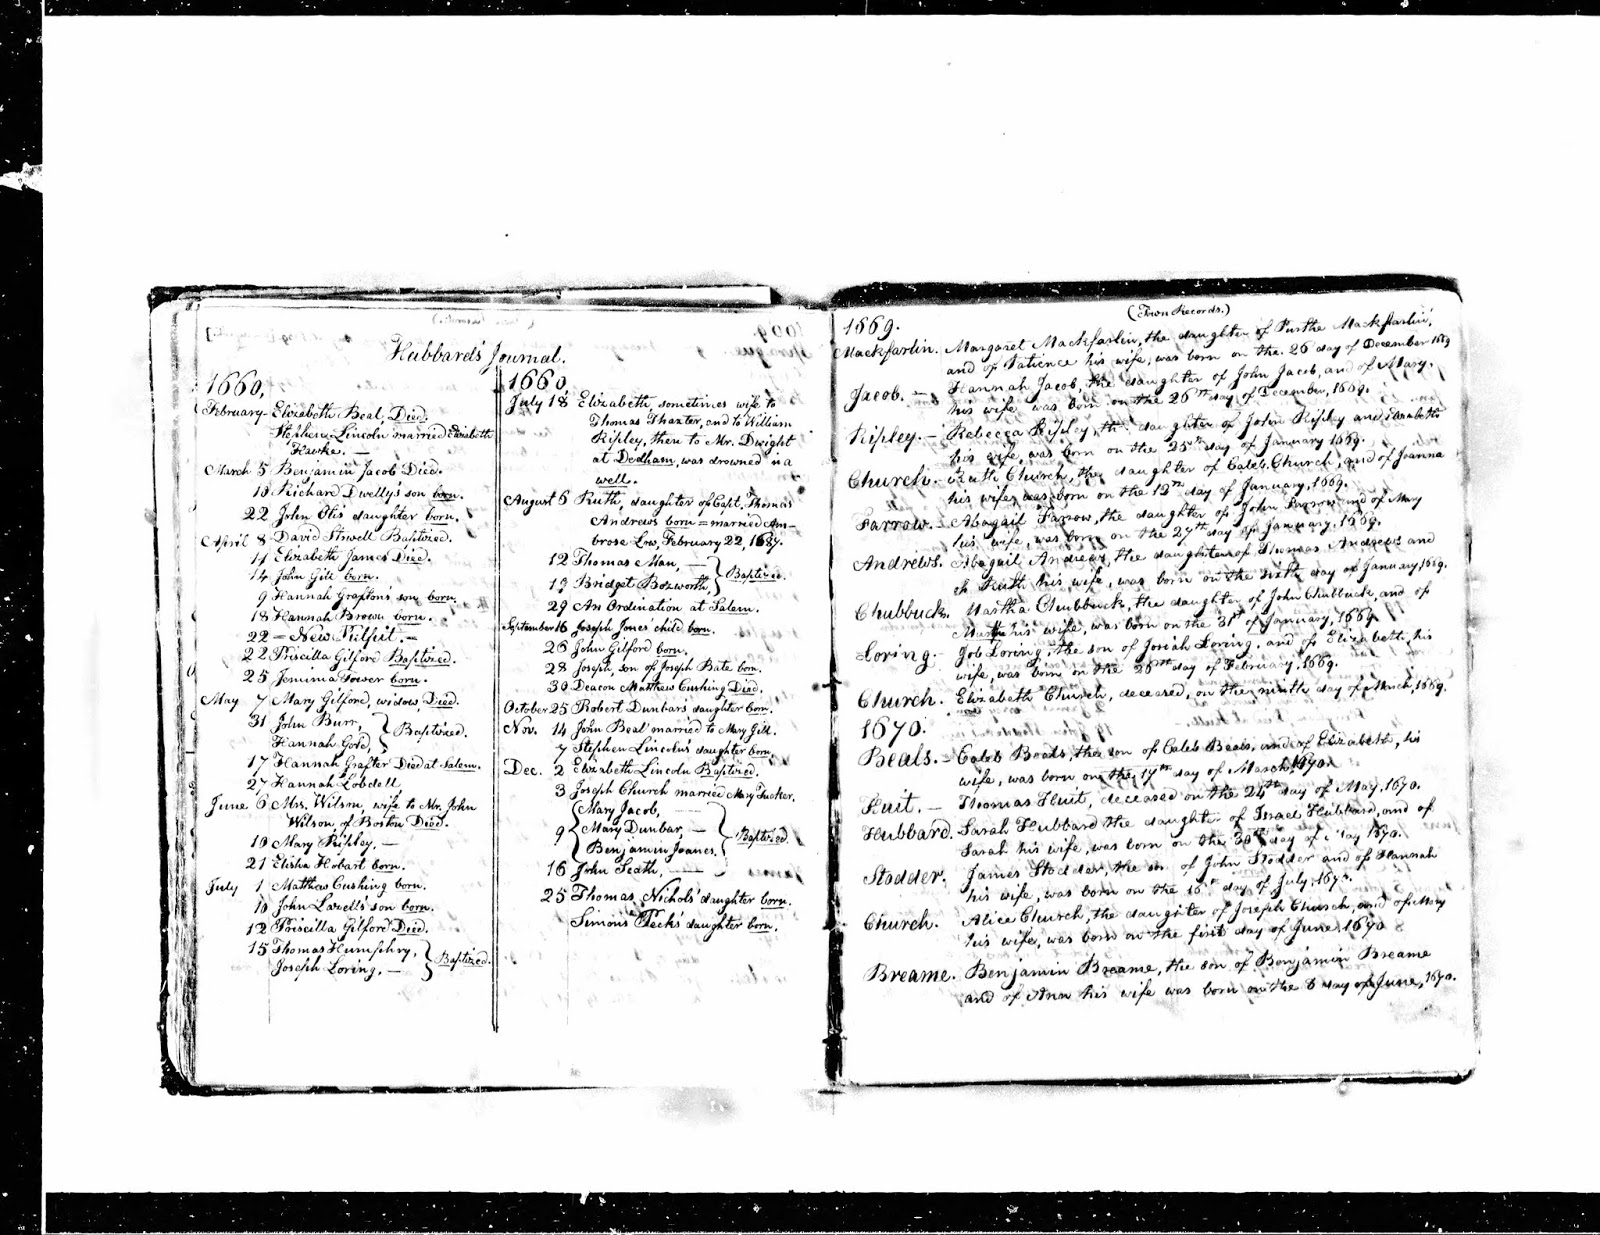 Hubbard's Journal.
1660,
February- Elizabeth Beal, Died.
Stephen Lincoln married Elizabeth
Hawke. —
March 5 Benjamin Jacob Died.
10 Richard Dwelly's son born.
22 John Otis' daughter born.
April 8 David Stowell Baptized.
11 Elizabeth James Died.
14 John Gill born.
9 Hannah Grafton's son born.
18 Hannah Brown born.
22 = New =
22 Priscilla Gilford Baptized.
25 Jemima Tower born.
May 7 Mary Gilford, widow, Died.
31 John Burr,
Hannah Gord, } Baptized.
17 Hannah Grafter Died at Salem.
27 Hannah Lobdell
June 6 Mrs. Wilson, wife to Mr. John
Wilson of Boston Died.
10 Mary Ripley, —
21 Elisha Hobart born.
July 1 Matthew Cushing born.
10 John Lazell's son born.
12 Priscilla Gilford Died.
15 Thomas Humphry, } Baptized.
Joseph Loring, —
1660,
July 18 Elizabeth sometimes wife to
Thomas Thaxter, and to William
Ripley, then to Mr. Dwight
at Dedham, was drowned in a
well.
August 6 Ruth, daughter of Capt. Thomas
Andrews born = married Am-
brose Low, February 22, 1687.
12 Thomas Man, — } Baptized.
19 Bridget Bozworth,
29 An Ordination at Salem.
September 16 Joseph Jones' child born.
26 John Gilford born.
28 Joseph, son of Joseph Bate born.
30 Deacon Matthew Cushing Died.
October 25 Robert Dunbar's daughter born.
Nov. 14 John Beal married to Mary Gill.
7 Stephen Lincoln's daughter born.
Dec. 2 Elizabeth Lincoln Baptized.
3 Joseph Church married Mary Tucker.
{ Mary Jacob, —
9 { Mary Dunbar, — } Baptized.
{ Benjamin Joanes.
16 John Leath, —
25 Thomas Nichols' daughter born.
Simons Peck's daughter born.
(Town Records.)
1669.
Mackfarlin. Margaret Mackfarlin, the daughter of Purthe Mackfarlin,
and of Patience his wife, was born on the 26 day of December 1669
Jacob. — Hannah Jacob, the daughter of John Jacob, and of Mary.
his wife was born on the 26th day of December, 1669.
Ripley. — Rebecca Ripley, the daughter of John Ripley and Elizabeth
his wife, was born on the 25th day of January 1669.
Church. Ruth Church, the daughter of Caleb Church, and of Joanna
his wife, was born on the 12th day of January, 1669.
Farrow. Abagail Farrow, the daughter of John Farrow and of Mary
his wife, was born on the 27th day of January, 1669.
Andrews. Abagail Andrews, the daughter of Thomas Andrews and
of Ruth his wife, was born on the day of January 1669.
Chubbuck. Martha Chubbuck, the daughter of John Chubbuck, and of
Martha his wife, was born on the 31st of January, 1669
Loring. Job Loring, the son of Josiah Loring, and of Elizabeth, his
wife, was born on the 26th day of February, 1669.
Church. Elizabeth Church, deceased, on the ninth day of March, 1669.
1670.
Beals. — Caleb Beals, the son of Caleb Beals, and of Elizabeth, his
wife, was born on the 17th day of March, 1670.
Huit. — Thomas Huit, deceased on the 24th day of May, 1670.
Hubbard. Sarah Hubbard the daughter of Israel Hubbard, and of
Sarah his wife, was born on the 30th day of May 1670.
Stodder. James Stodder, the son of John Stodder and of Hannah
his wife, was born on the 16th day of July, 1670.
Church. Alice Church, the daughter of Joseph Church, and of Mary
his wife, was born on the first day of June, 1670
Breame. Benjamin Breame, the son of Benjamin Breame
and of Ann his wife was born on the 6 day of June, 1670.